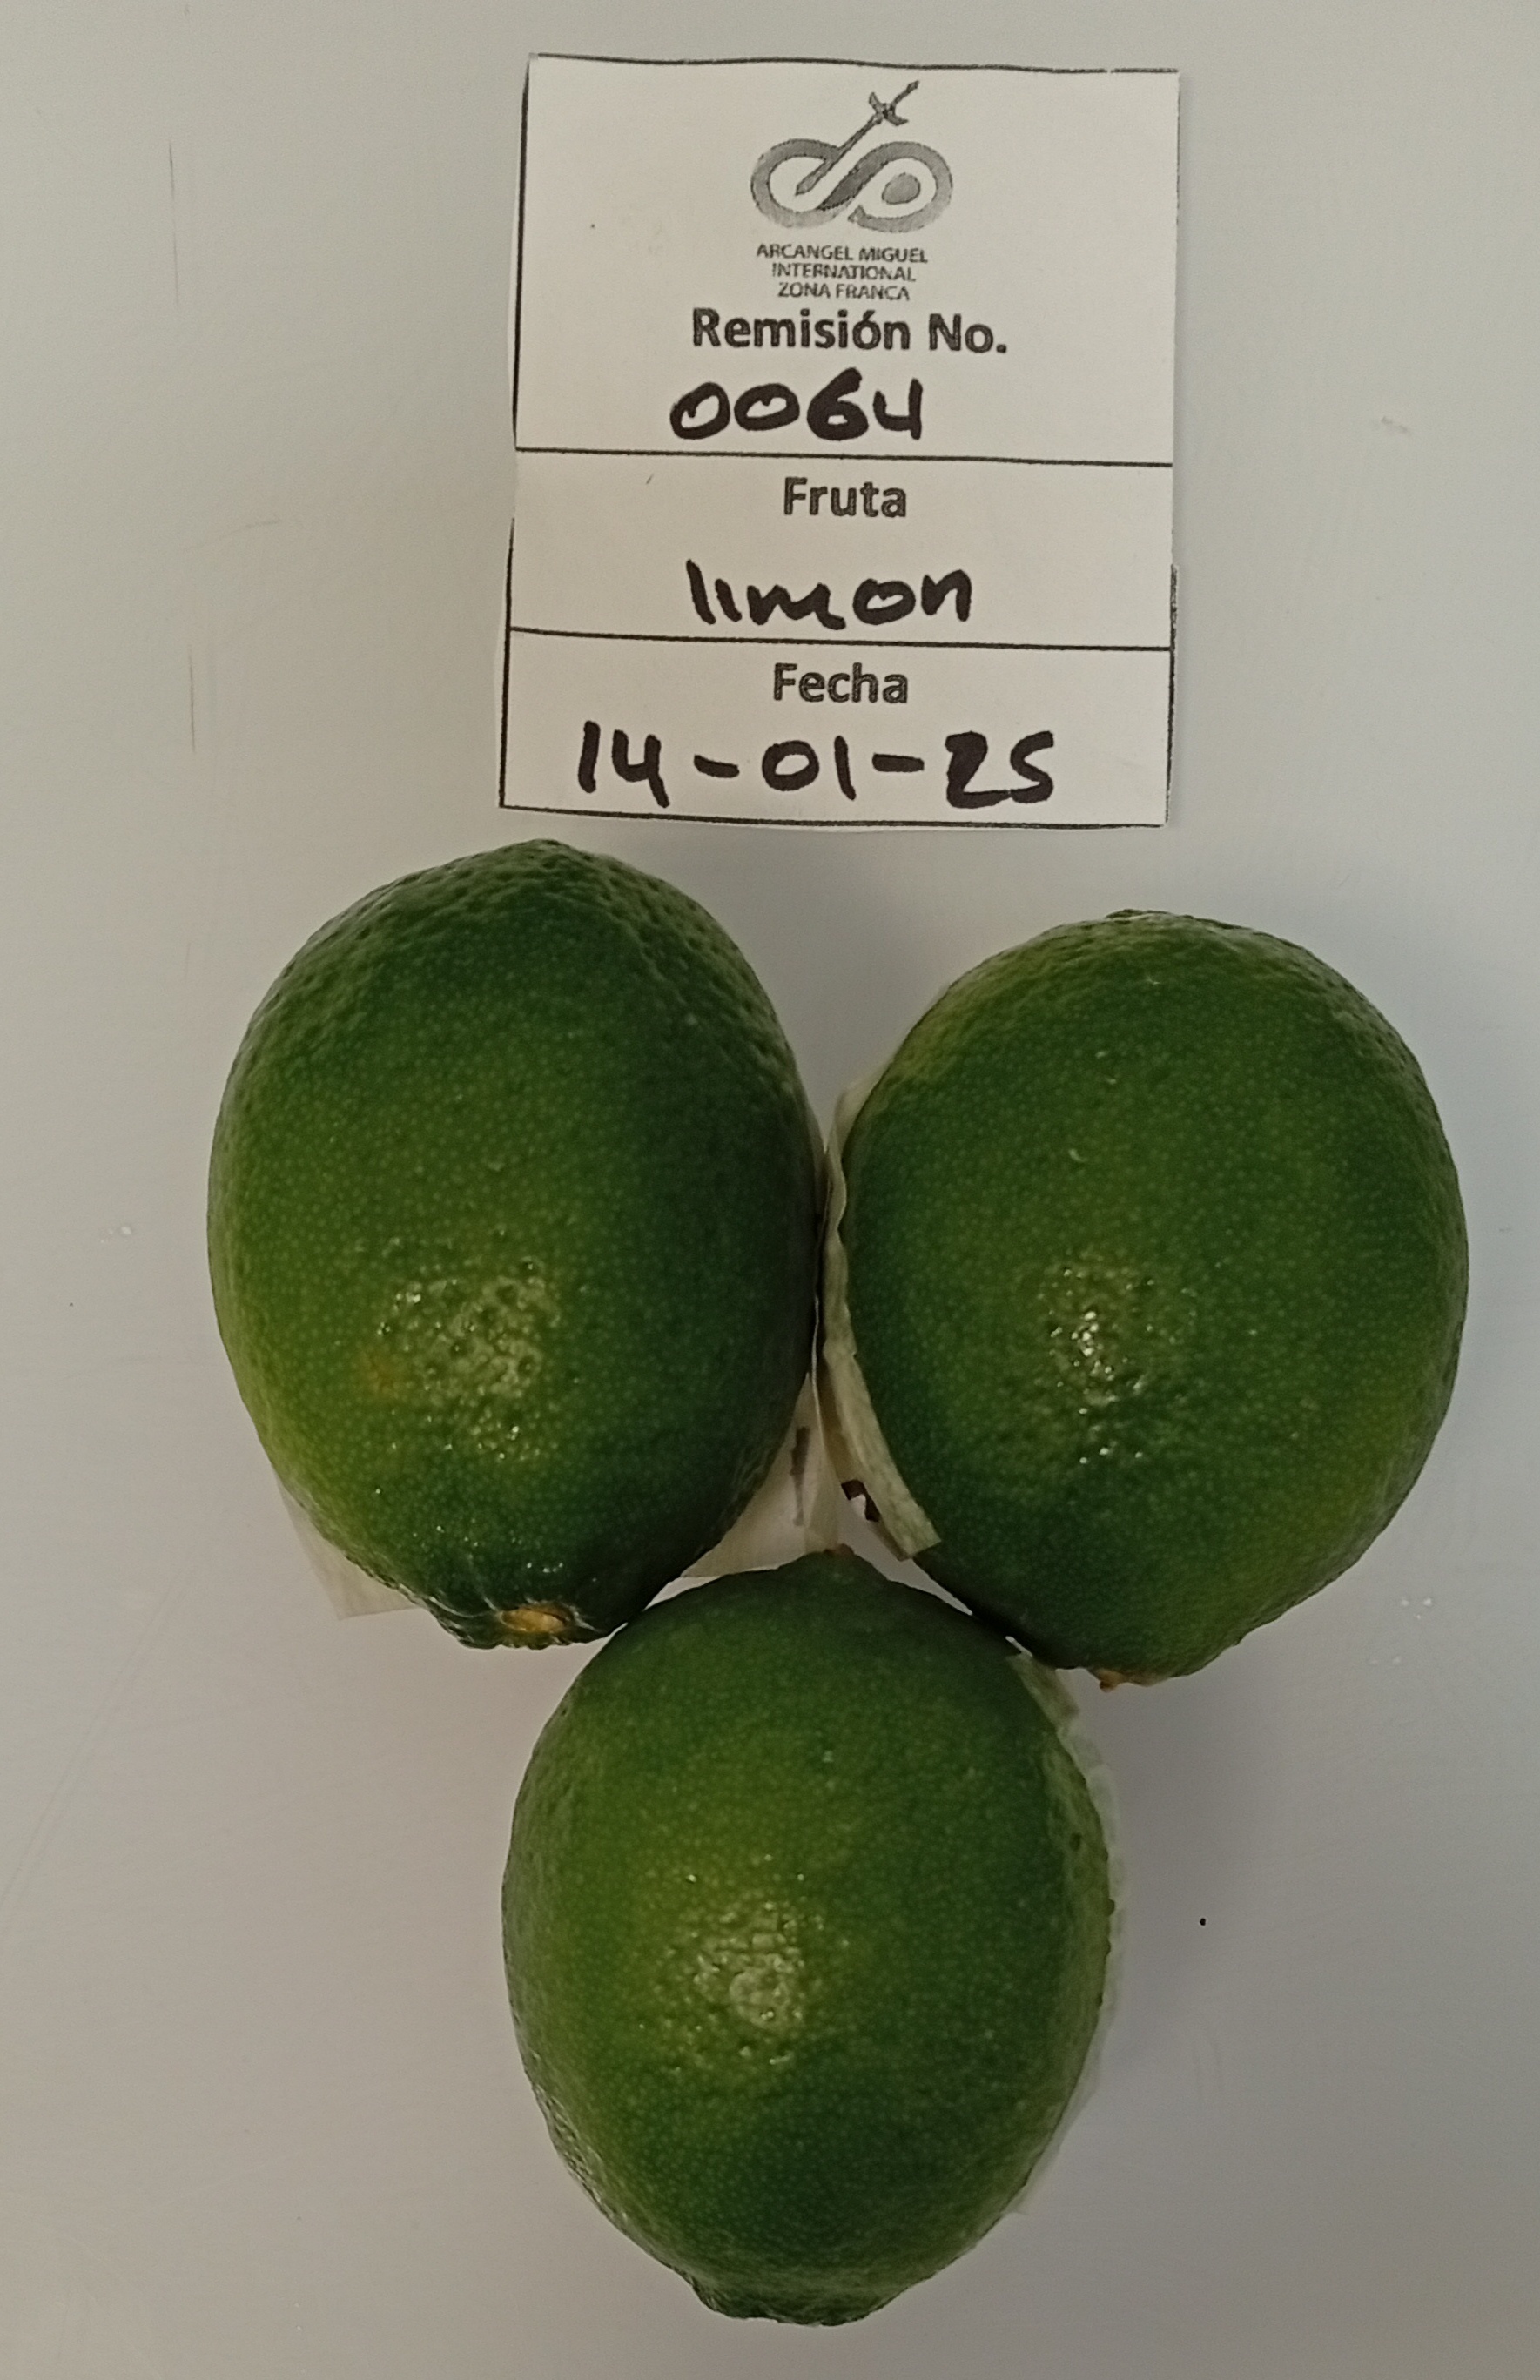 ARCANGEL MIGUEL
INTERNATIONAL
ZONA FRANCA
Remisión No.
0064
Fruta
limon
Fecha
14-01-25